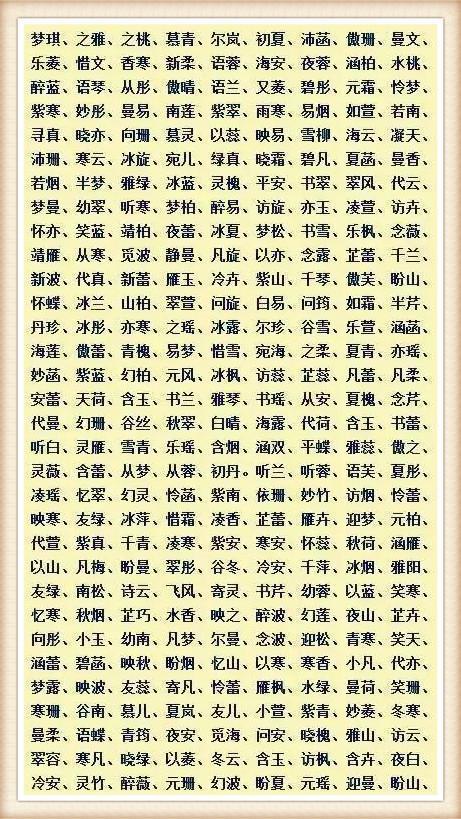 梦琪、之雅、之桃、慕青、尔岚、初夏、沛菡、傲珊、曼文、
乐菱、惜文、香寒、新柔、语蓉、海安、夜蓉、涵柏、水桃、
醉蓝、语琴、从彤、傲晴、语兰、又菱、碧彤、元霜、怜梦、
紫寒、妙彤、曼易、南莲、紫翠、雨寒、易烟、如萱、若南、
寻真、晓亦、向珊、慕灵、以蕊、映易、雪柳、海云、凝天、
沛珊、寒云、冰旋、宛儿、绿真、晓霜、碧凡、夏菡、曼香、
若烟、半梦、雅绿、冰蓝、灵槐、平安、书翠、翠风、代云、
梦曼、幼翠、听寒、梦柏、醉易、访旋、亦玉、凌萱、访卉、
怀亦、笑蓝、靖柏、夜蕾、冰夏、梦松、书雪、乐枫、念薇、
靖雁、从寒、觅波、静曼、凡旋、以亦、念露、芷蕾、千兰、
新波、代真、新蕾、雁玉、冷卉、紫山、千琴、傲芙、盼山、
怀蝶、冰兰、山柏、翠萱、问旋、白易、问筠、如霜、半芹、
丹珍、冰彤、亦寒、之瑶、冰露、尔珍、谷雪、乐萱、涵菡、
海莲、傲蕾、青槐、易梦、惜雪、宛海、之柔、夏青、亦瑶、
妙菡、紫蓝、幻柏、元风、冰枫、访蕊、芷蕊、凡蕾、凡柔、
安蕾、天荷、含玉、书兰、雅琴、书瑶、从安、夏槐、念芹、
代曼、幻珊、谷丝、秋翠、白晴、海露、代荷、含玉、书蕾、
听白、灵雁、雪青、乐瑶、含烟、涵双、平蝶、雅蕊、傲之、
灵薇、含蕾、从梦、从蓉、初丹。听兰、听蓉、语芙、夏彤、
凌瑶、忆翠、幻灵、怜菡、紫南、依珊、妙竹、访烟、怜蕾、
映寒、友绿、冰萍、惜霜、凌香、芷蕾、雁卉、迎梦、元柏、
代萱、紫真、千青、凌寒、紫安、寒安、怀蕊、秋荷、涵雁、
以山、凡梅、盼曼、翠彤、谷冬、冷安、千萍、冰烟、雅阳、
友绿、南松、诗云、飞风、寄灵、书芹、幼蓉、以蓝、笑寒、
忆寒、秋烟、芷巧、水香、映之、醉波、幻莲、夜山、芷卉、
向彤、小玉、幼南、凡梦、尔曼、念波、迎松、青寒、笑天、
涵蕾、碧菡、映秋、盼烟、忆山、以寒、寒香、小凡、代亦、
梦露、映波、友蕊、寄凡、怜蕾、雁枫、水绿、曼荷、笑珊、
寒珊、谷南、慕儿、夏岚、友儿、小萱、紫青、妙菱、冬寒、
曼柔、语蝶、青筠、夜安、觅海、问安、晓槐、雅山、访云、
翠容、寒凡、晓绿、以菱、冬云、含玉、访枫、含卉、夜白、
冷安、灵竹、醉薇、元珊、幻波、盼夏、元瑶、迎曼、盼山、